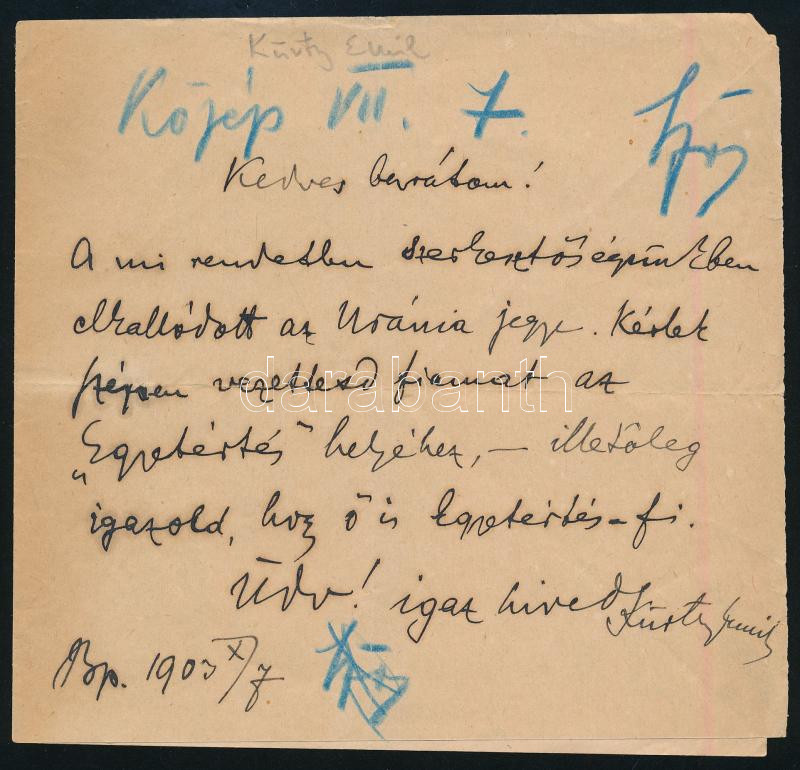 Kürty Emil
Közép VII. 7.
Kedves barátom!
A mi rendetlen szerkesztőségünkben
elkallódott az Uránia jegye. Kérlek
szépen vezettesd fiamat az
„Egyetértés" helyéhez, — illetőleg
igazold, hogy ő is Egyetértés-fi.
Üdv! igaz hived Kürty Emil
Bp. 1903 X/7
darabanth